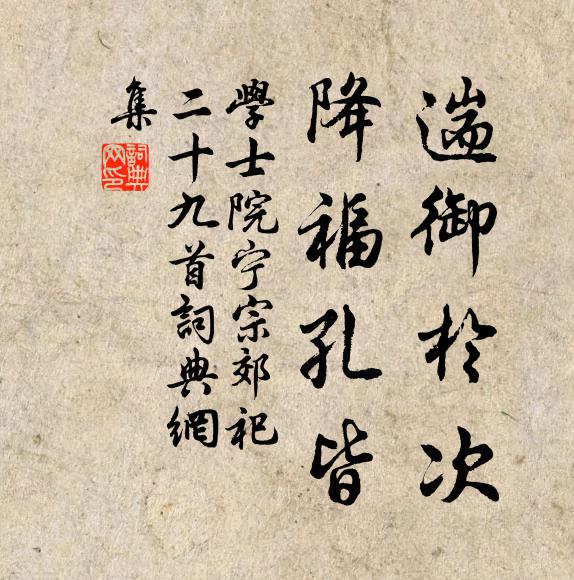 遄御於次
降福孔皆
學士院宁宗郊祀
二十九首詞典網
集
詞典
网印